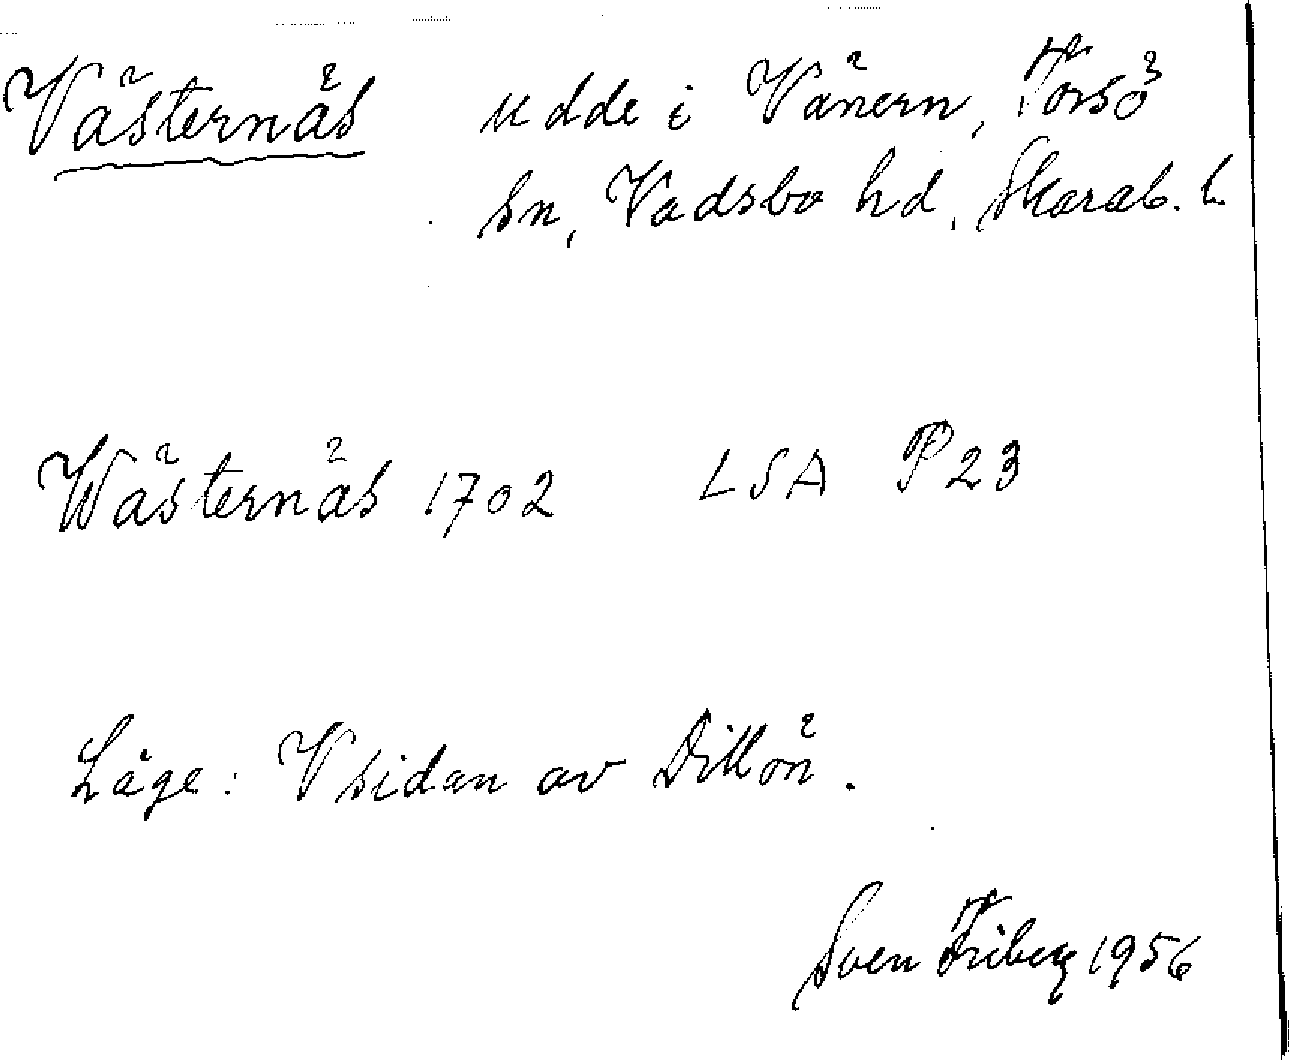 Västernäs udde i Vänern, Torsö
sn, Vadsbo hd, Skarab. l.
Wästernäs 1702 LSA P 23
Läge: V sidan av Dillön.
Sven Friberg 1956